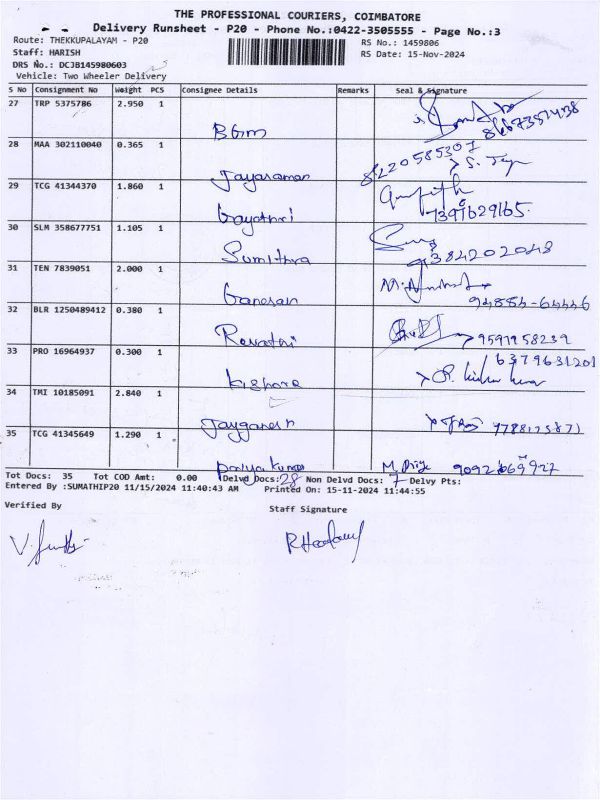 THE PROFESSIONAL COURIERS, COIMBATORE
Delivery Runsheet - P20 - Phone No.:0422-3505555 - Page No.:3
Route: THEKKUPALAYAM - P20 RS No.: 1459806
Staff: HARISH RS Date: 15-Nov-2024
DRS No.: DCJB145980603
Vehicle: Two Wheeler Delivery
S No Consignment No Weight PCS Consignee Details Remarks Seal & Signature
27 TRP 5375786 2.950 1
BGM 8667351438
28 MAA 302110040 0.365 1 8220585307
Jayaraman S.
29 TCG 41344370 1.860 1
Gayathri 7391629165.
30 SLM 358677751 1.105 1
Sumithra 9384202048
31 TEN 7839051 2.000 1
Ganesan 94884-64446
32 BLR 1250489412 0.380 1
Revathi 9591958239
33 PRO 16964937 0.300 1 6379631201
Kishore
34 TMI 10185091 2.840 1
Jayganesh
35 TCG 41345649 1.290 1
Priya kumar M. Priya 9092669927
Tot Docs: 35 Tot COD Amt: 0.00 Delvd Docs: 28 Non Delvd Docs: 7 Delvy Pts:
Entered By :SUMATHIP20 11/15/2024 11:40:43 AM Printed On: 15-11-2024 11:44:55
Verified By Staff Signature